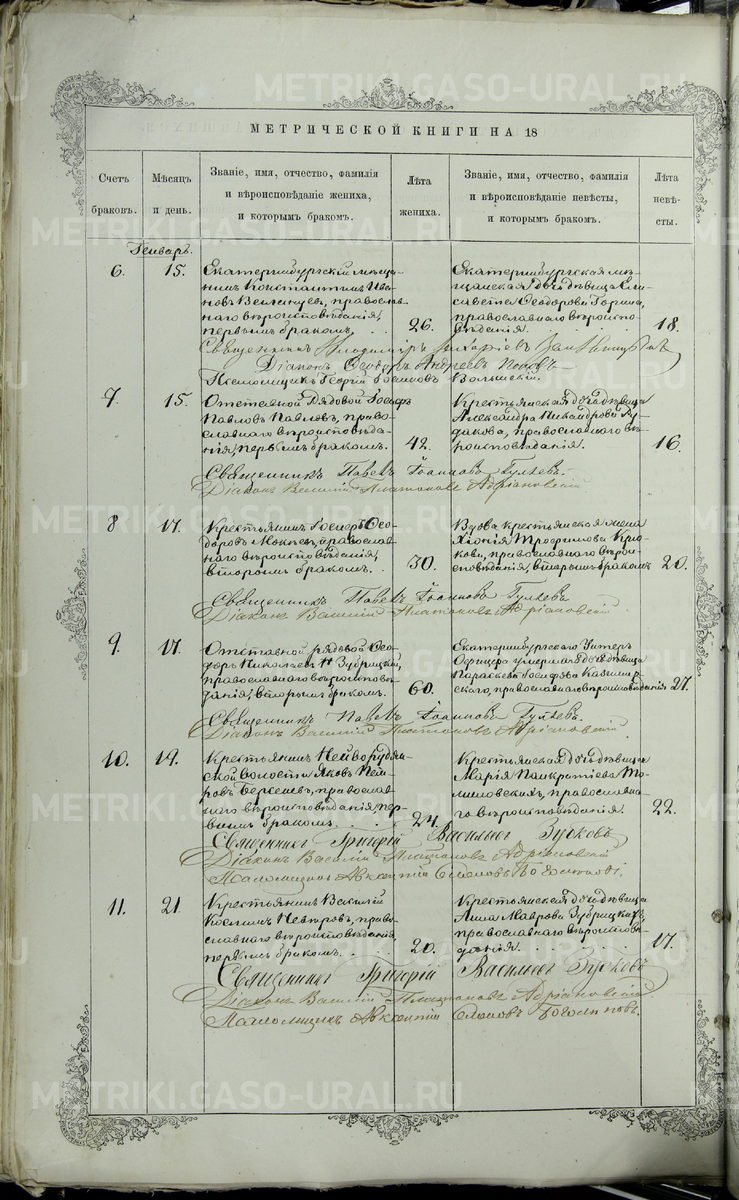 METRIKI.GASO-URAL.RU
МЕТРИЧЕСКОЙ КНИГИ НА 18
Счетъ браковъ.
Мѣсяцъ и день.
Званіе, имя, отчество, фамилія
и вѣроисповѣданіе жениха,
и которымъ бракомъ.
Лѣта жениха.
Званіе, имя, отчество, фамилія
и вѣроисповѣданіе невѣсты,
и которымъ бракомъ.
Лѣта невѣ-
сты.
Генварь.
6.
15.
Екатеринбургскій мѣща-
нинъ Константинъ Ива-
новъ православ-
наго вѣроисповѣданія,
первымъ бракомъ.
26.
Екатеринбургская мѣ-
щанская дочь дѣвица Ели-
савета Ѳеодорова
православнаго вѣроиспо-
вѣданія.
18.
Священникъ Владиміръ
Діаконъ Ѳеодоръ Андреевъ Поповъ
Псаломщикъ Георгій
7.
15.
Отставной рядовой Іосифъ
Павловъ Павловъ, право-
славнаго вѣроисповѣда-
нія, первымъ бракомъ.
42.
Крестьянская дочь дѣвица
Александра Никандрова Ру-
дакова, православнаго вѣ-
роисповѣданія.
16.
Священникъ Павелъ Іоанновъ Гуляевъ.
Діаконъ Василій Платоновъ Адріановскій
8
17.
Крестьянинъ Іосифъ Ѳео-
доровъ православ-
наго вѣроисповѣданія,
вторымъ бракомъ.
30.
Вдова крестьянская жена
Хіонія Трофимова
православнаго вѣрои-
сповѣданія, вторымъ бракомъ
20.
Священникъ Павелъ Іоанновъ Гуляевъ
Діаконъ Василій Платоновъ Адріановскій
9.
17.
Отставной рядовой Ѳео-
доръ Николаевъ Зубрицкій,
православнаго вѣроисповѣ-
данія, вторымъ бракомъ.
60.
Екатеринбургскаго Унтеръ
Офицера умершая дочь дѣвица
Параскева Іосифова
православнаго вѣроисповѣданія
27.
Священникъ Павелъ Іоанновъ Гуляевъ.
Діаконъ Василій Платоновъ Адріановскій
10.
19.
Крестьянинъ Нейворудян-
ской волости Яковъ Пет-
ровъ православ-
наго вѣроисповѣданія, пер-
вымъ бракомъ.
24.
Крестьянская дочь дѣвица
Марія Панкратіева То-
миловскихъ, православна-
го вѣроисповѣданія.
22.
Священникъ Григорій Васильевъ Гусковъ
Діаконъ Василій Платоновъ Адріановскій
Псаломщикъ Авксентій Симоновъ Боголѣповъ
11.
21
Крестьянинъ Василій
Козминъ право-
славнаго вѣроисповѣданія,
первымъ бракомъ.
20.
Крестьянская дочь дѣвица
Анна Маврова Зубрицкихъ,
православнаго вѣроиспо-
вѣданія.
17.
Священникъ Григорій Васильевъ Гусковъ
Діаконъ Василій Платоновъ Адріановскій
Псаломщикъ Авксентій Симоновъ Боголѣповъ.